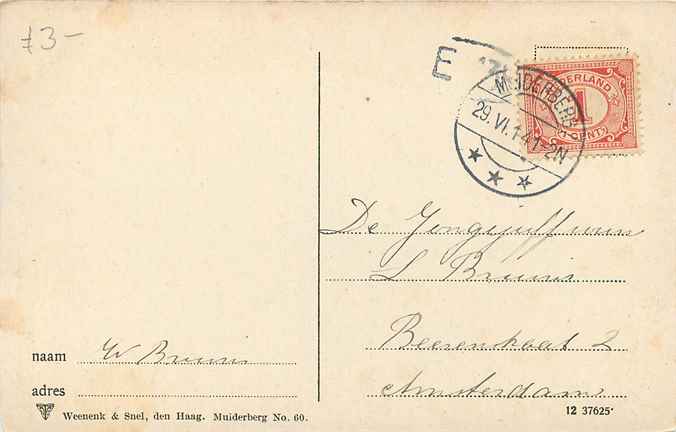 f3-
E
MUIDERBERG
29.VI.14 1-2N
NEDERLAND
1
CENT
De Jongejuffrouw
L Bruins
Beerenstraat 2
Amsterdam
naam W Bruins
adres
Weenenk & Snel, den Haag. Muiderberg No. 60.
12 37625*